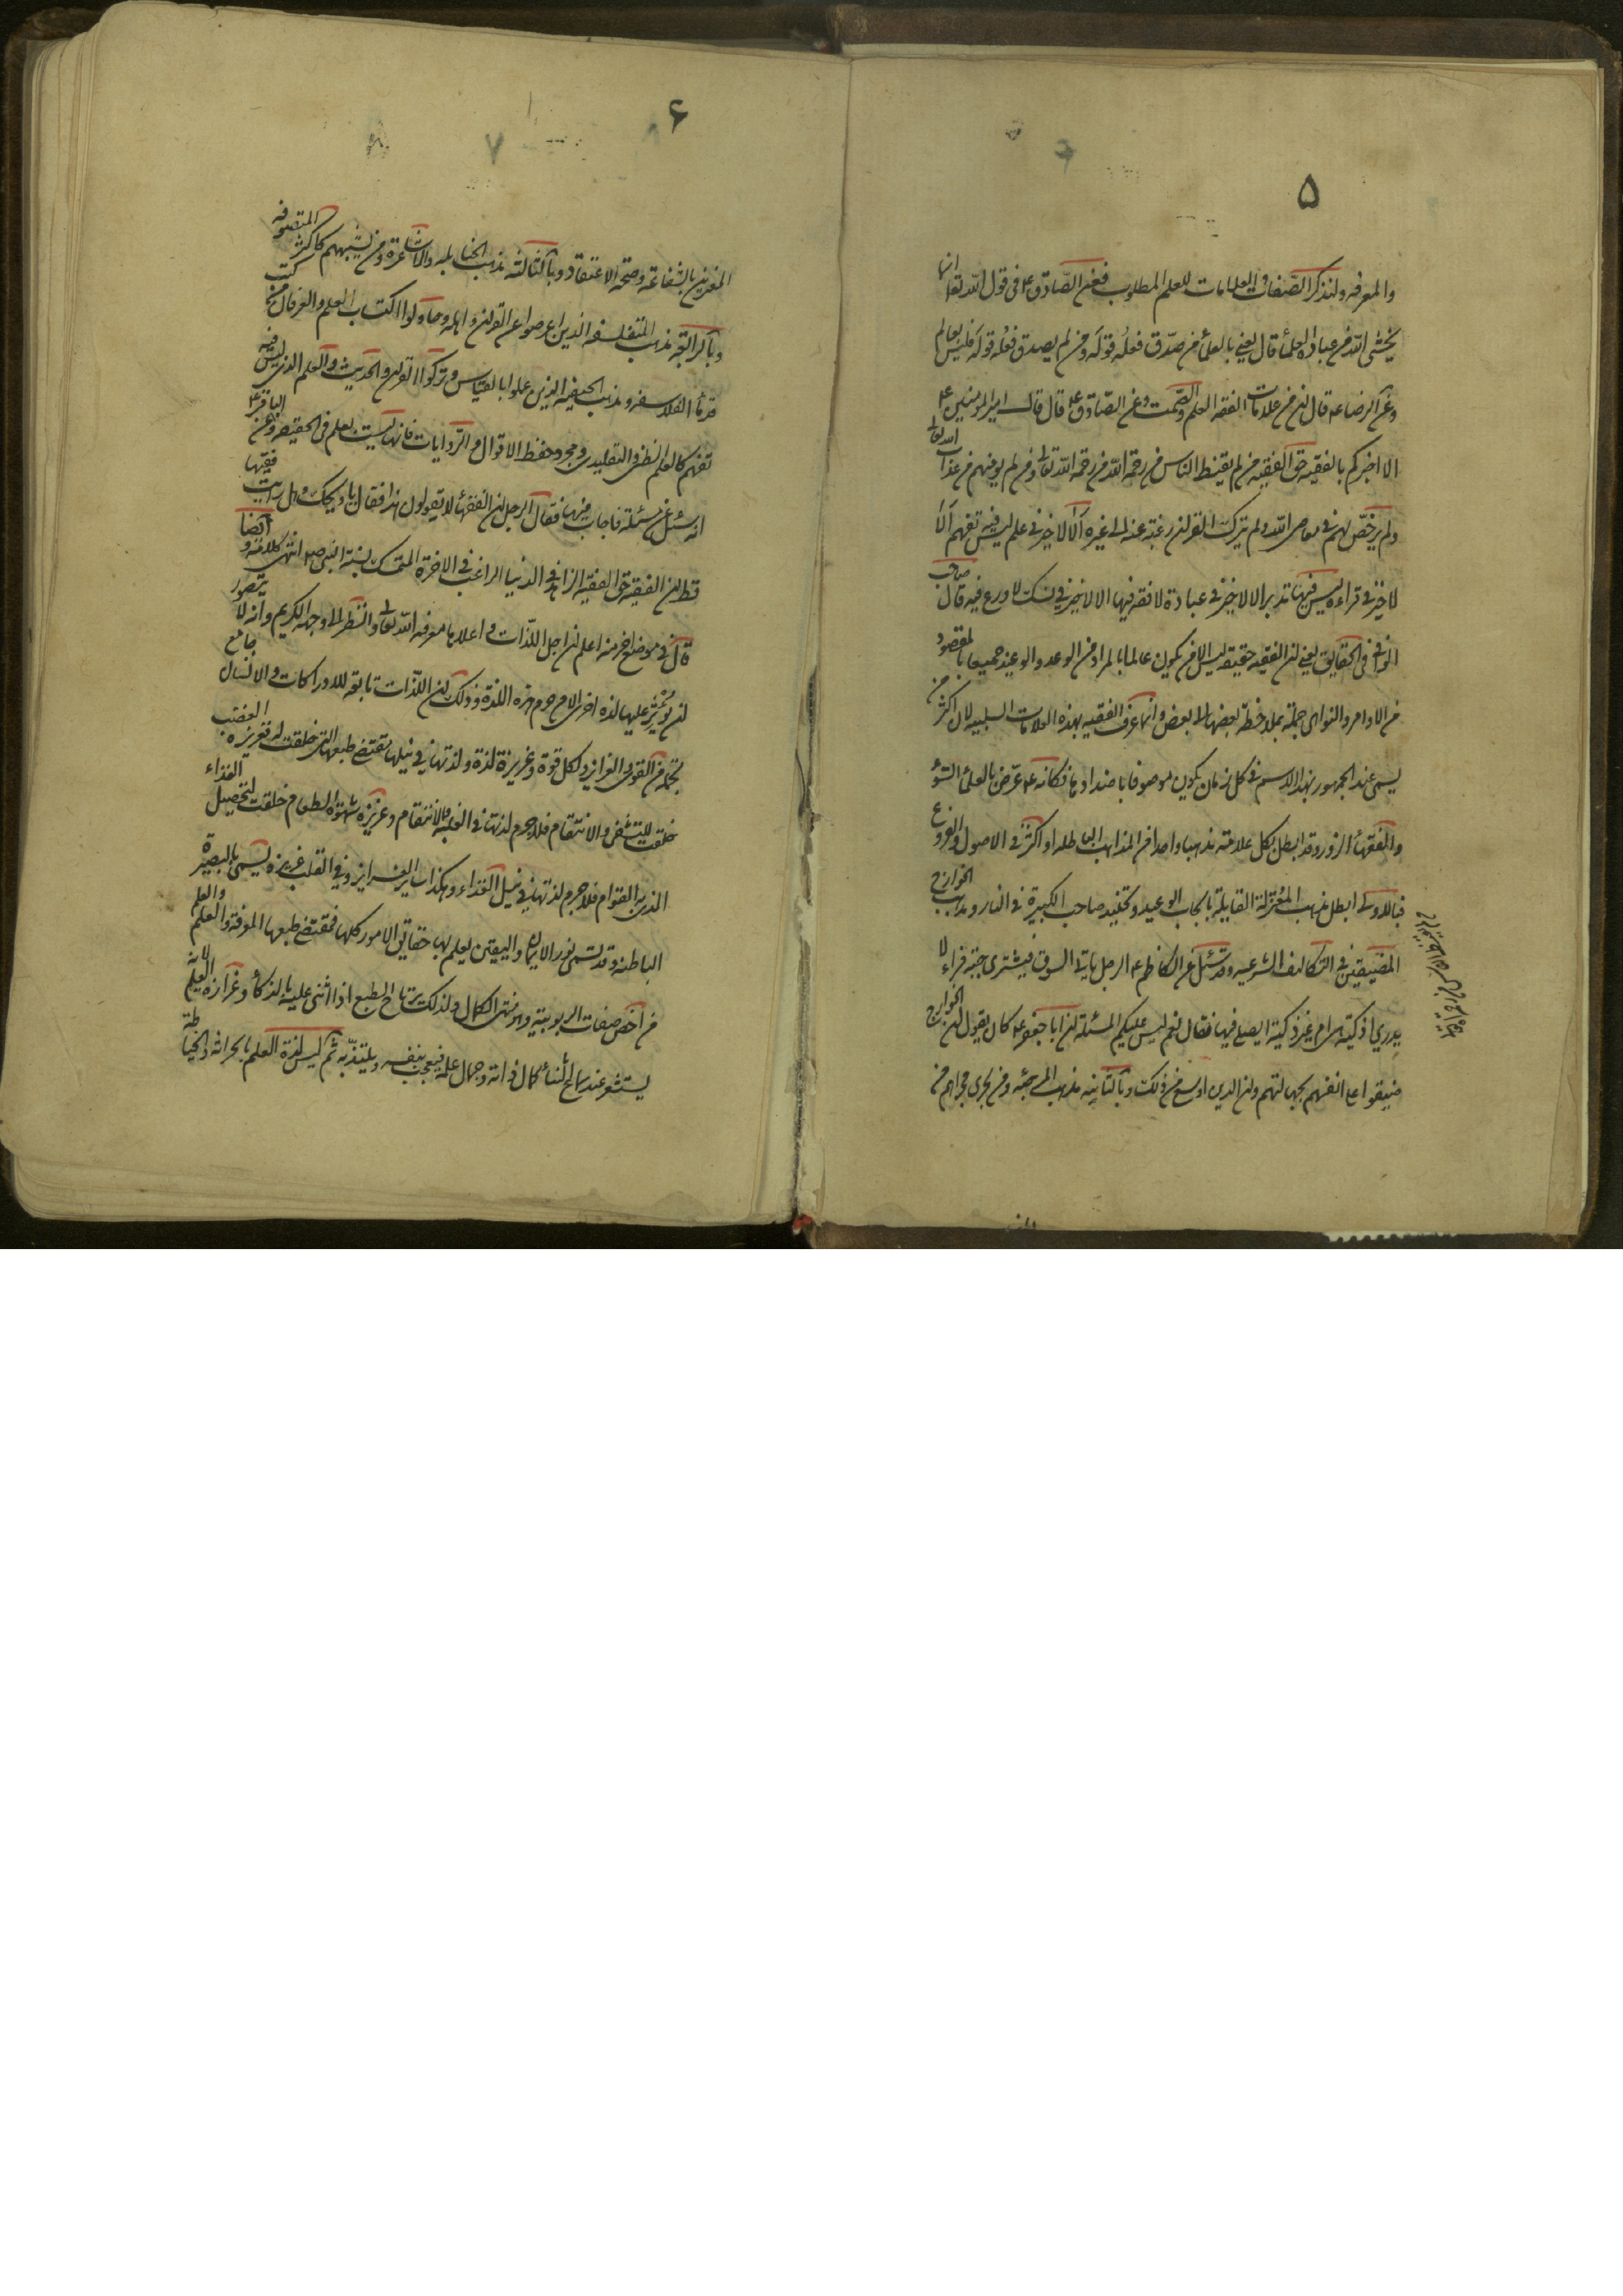 ۵
والمعرفه ولنذكر الصّفات والعلامات للعلم المطلوب فعن الصّادق ع في قول اللّه تعا انما
يخشى اللّه من عباده العلمأ قال يعني بالعلمأ من صدّق فعلُه قولَه ومن لم يصدق فعلُه قولَه فليس بعالم
وعن الرضا ع قال ان من علامات الفقه الحلم والصّمت وعن الصّادق ع قال قال امير المؤمنين ع
الا اخبركم بالفقيه حق الفقيه من لم يقنط الناس من رحمة اللّه تعا ومن لم يؤمنهم من عذاب اللّه تعا
ولم يرخّص لهم في معاصى اللّه ولم يترك القران رغبة عنه الى غيره ألا لا خير في علم ليس فيه تفهم ألا
لا خير في قراءه ليس فيها تدبر الا لا خير في عبادة لا فقه فيها الا لا خير في نسك لا ورع فيه قال صاحب
الوافي في الحقايق يعني ان الفقيه حقيقه ليس الا من يكون عالما بالمراد من الوعد والوعيد جميعا بالمقصود
من الاوامر والنواهى جملة بملاحظة بعضها الى بعض وانما عرف الفقيه بهذه العلامات السلبيه لان اكثر من
يسمى عند الجمهور بهذا الاسم في كل زمان يكون موصوفا باضدادها فكانه ع عرّض بالعلمأ السّوء
والفقهأ الزور وقد ابطل بكل علامة مذهبا واحدا من المذاهب الباطله او اكثر في الاصول والفروع
فبالاولى ابطل مذهب المعتزلة القايلة بايجاب الوعيد وتخليد صاحب الكبيرة في النار ومذهب الخوارج
المضيقين في التكاليف الشرعيه وقد سئل عن الكاظم ع الرجل ياتي السوق فيشترى جبة فراء لا
يدرى اذكية هى ام غير ذكية ايصلى فيها فقال نعم ليس عليكم المسئلة ان ابا جعفر ع كان يقول ان الخوارج
ضيقوا على انفسهم بجهالتهم وان الدين اوسع من ذلك وبالثانيه مذهب المرجئه ومن يجرى مجراهم من
۶
المغترين بالشفاعة وصحة الاعتقاد وبالثالثه مذهب الحنابله والاشاعرة ومن يشبههم كاكثر المتصوفه
وبالرابعة مذهب المتفلسفه الذين اعرضوا عن القران واهله وحاولوا اكتساب العلم والعرفان من كتب
قدمأ الفلاسفه ومذهب الحنيفه الذين عملوا بالقياس وتركوا القران والحديث والعلم الذى ليس فيه
تفهم كالعلم الظنى والتقليدى ومجرد حفظ الاقوال والرّوايات فانها ليست بعلم فى الحقيقه وعن الباقر ع
انه سئل عن مسئلة فاجاب فيها فقال الرجل ان الفقهأ لا يقولون هذا فقال يا ويحك وهل رايت فقيها
قط ان الفقيه حق الفقيه الزاهد في الدنيا الراغب في الاخرة المتمسك بسنة النبى ص انتهى كلامه و ايضا
قال في موضع اخر منه اعلم ان اجل اللذّات و اعلاها معرفه اللّه تعالى والنظر الى وجهه الكريم وانه لا يتصور
ان يؤثر عليها لذه اخرى الا من حرم هذه اللذة وذلك لان اللذّات تابعه للادراكات والانسان جامع
لجملة من القوى والغرايز ولكل قوة وغريزة لذة ولذتها في نيلها مقتضى طبعها التى خلقت له فغريزه الغضب
خلقت للتشفى والانتقام فلا جرم لذتها في الغلبه والانتقام وغريزه شهوة الطعام خلقت لتحصيل الغذاء
الذى به القوام فلا جرم لذتها في نيل الغذاء وهكذا ساير الغرايز وفي القلب غريزه يسمى بالبصيرة
الباطنه وقد تسمى نور الايمان واليقين يعلم بها حقايق الامور كلها فمقتضى طبعها المعرفة والعلم والعلم
من اخص صفات الربوبية وهو منتهى الكمال ولذلك يرتاح الطبع اذا اثنى عليه بالذكأ وغزارة العلم لانه
يستشعر عند سماع الثنأ كمال ذاته وجمال علمه فيعجب بنفسه ويلتذّ به ثم ليس لذة العلم بالحراثه والخياطة